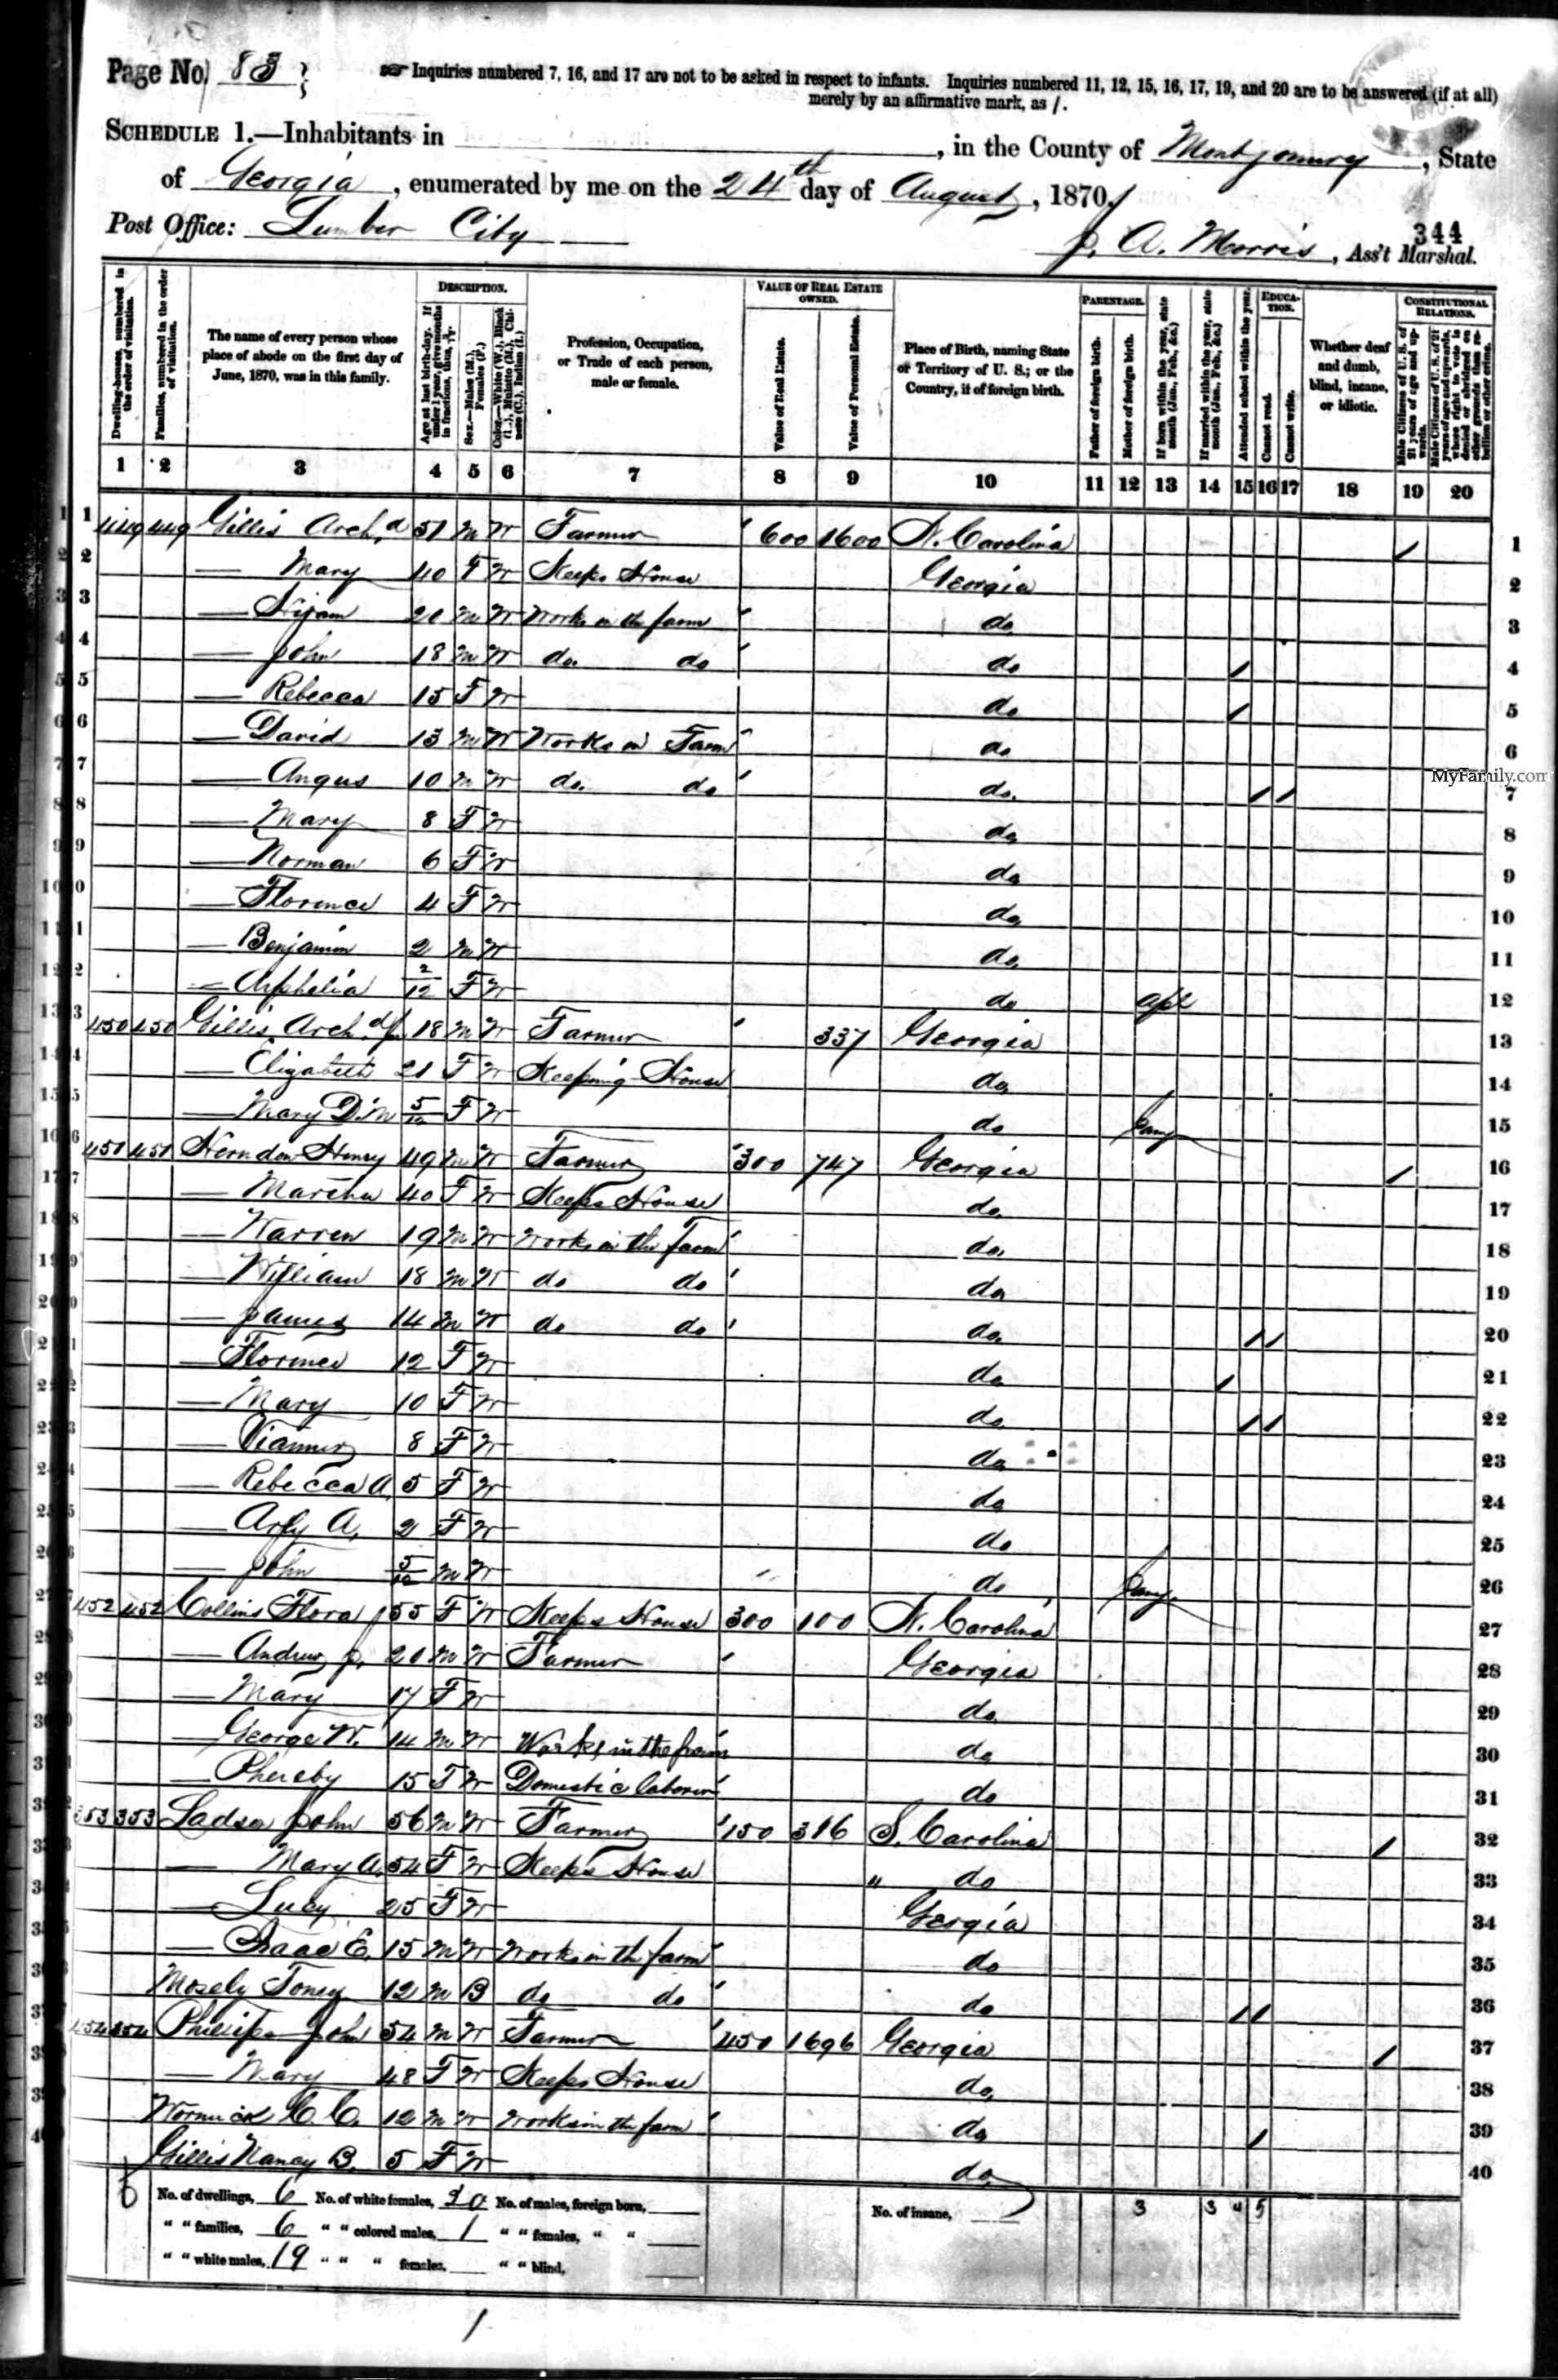 Page No. 83
☞ Inquiries numbered 7, 16, and 17 are not to be asked in respect to infants. Inquiries numbered 11, 12, 15, 16, 17, 19, and 20 are to be answered (if at all)
merely by an affirmative mark, as /.
SCHEDULE 1.—Inhabitants in , in the County of Montgomery, State
of Georgia, enumerated by me on the 24th day of August, 1870.
344
Post Office: Lumber City J. A. Morris, Ass't Marshal.
DESCRIPTION. VALUE OF REAL ESTATE OWNED. PARENTAGE. EDUCATION. CONSTITUTIONAL RELATIONS.
Dwelling-houses, numbered in the order of visitation.
Families, numbered in the order of visitation.
The name of every person whose place of abode on the first day of June, 1870, was in this family.
Age at last birth-day. If under 1 year, give months in fractions, thus, 3/12.
Sex.—Males (M.), Females (F.)
Color.—White (W.), Black (B.), Mulatto (M.), Chinese (C.), Indian (I.)
Profession, Occupation, or Trade of each person, male or female.
Value of Real Estate.
Value of Personal Estate.
Place of Birth, naming State or Territory of U. S.; or the Country, if of foreign birth.
Father of foreign birth.
Mother of foreign birth.
If born within the year, state month (Jan., Feb., &c.)
If married within the year, state month (Jan., Feb., &c.)
Attended school within the year.
Cannot read.
Cannot write.
Whether deaf and dumb, blind, insane, or idiotic.
Male Citizens of U. S. of 21 years of age and upwards.
Male Citizens of U. S. of 21 years of age and upwards, whose right to vote is denied or abridged on other grounds than rebellion or other crime.
1 2 3 4 5 6 7 8 9 10 11 12 13 14 15 16 17 18 19 20
1 449 449 Gillis Arch.d 51 M W Farmer 600 1600 N. Carolina / 1
2 — Mary 40 F W Keeps House Georgia 2
3 — Hijam 20 M W Works in the farm do 3
4 — John 18 M W do. do do / 4
5 — Rebecca 15 F W do / 5
6 — David 13 M W Works on Farm do 6
MyFamily.com
7 — Angus 10 M W do. do do. / / 7
8 — Mary 8 F W do 8
9 — Norman 6 F W do 9
10 — Florence 4 F W do 10
11 — Benjamin 2 M W do. 11
12 — Orphelia 2/12 F W do Apl 12
13 450 450 Gillis Arch.d Jr 18 M W Farmer 337 Georgia 13
14 — Elizabeth 21 F W Keeping House do 14
15 — Mary D. M 5/12 F W do Jany 15
16 451 451 Herndon Henry 49 M W Farmer 300 747 Georgia / 16
17 — Martha 40 F W Keeps House do. 17
18 — Warren 19 M W Works in the Farm do. 18
19 — William 18 M W do do do 19
20 — James 14 M W do do do. / / 20
21 — Florence 12 F W do / 21
22 — Mary 10 F W do. / / 22
23 — 8 F W do 23
24 — Rebecca A. 5 F W do 24
25 — Arly A. 2 F W do 25
26 — John 5/12 M W do Jany. 26
27 452 452 Collins Flora J 55 F W Keeps House 300 100 N. Carolina 27
28 — Andrew J. 20 M W Farmer Georgia 28
29 — Mary 17 F W do. 29
30 — George W. 14 M W Works in the farm do 30
31 — Phereby 15 F W Domestic laborer do 31
32 353 353 Ladson John 56 M W Farmer 150 316 S. Carolina / 32
33 — Mary A. 54 F W Keeps House " do 33
34 — Lucy 25 F W Gergia 34
35 — Isaac E. 15 M W Works in the farm do 35
36 Mosely Toney 12 M B do do do / / 36
37 454 354 Phillips John 54 M W Farmer 450 1696 Georgia / 37
38 — Mary 48 F W Keeps House do. 38
39 Wornuck C. C. 12 M W Works in the farm do / 39
40 Gillis Nancy B. 5 F W do 40
6 No. of dwellings, 6 No. of white females, 20 No. of males, foreign born, No. of insane, 3 3 4 5
" " families, 6 " " colored males, 1 " " females, " "
" " white males, 19 " " " females, " " blind,
1